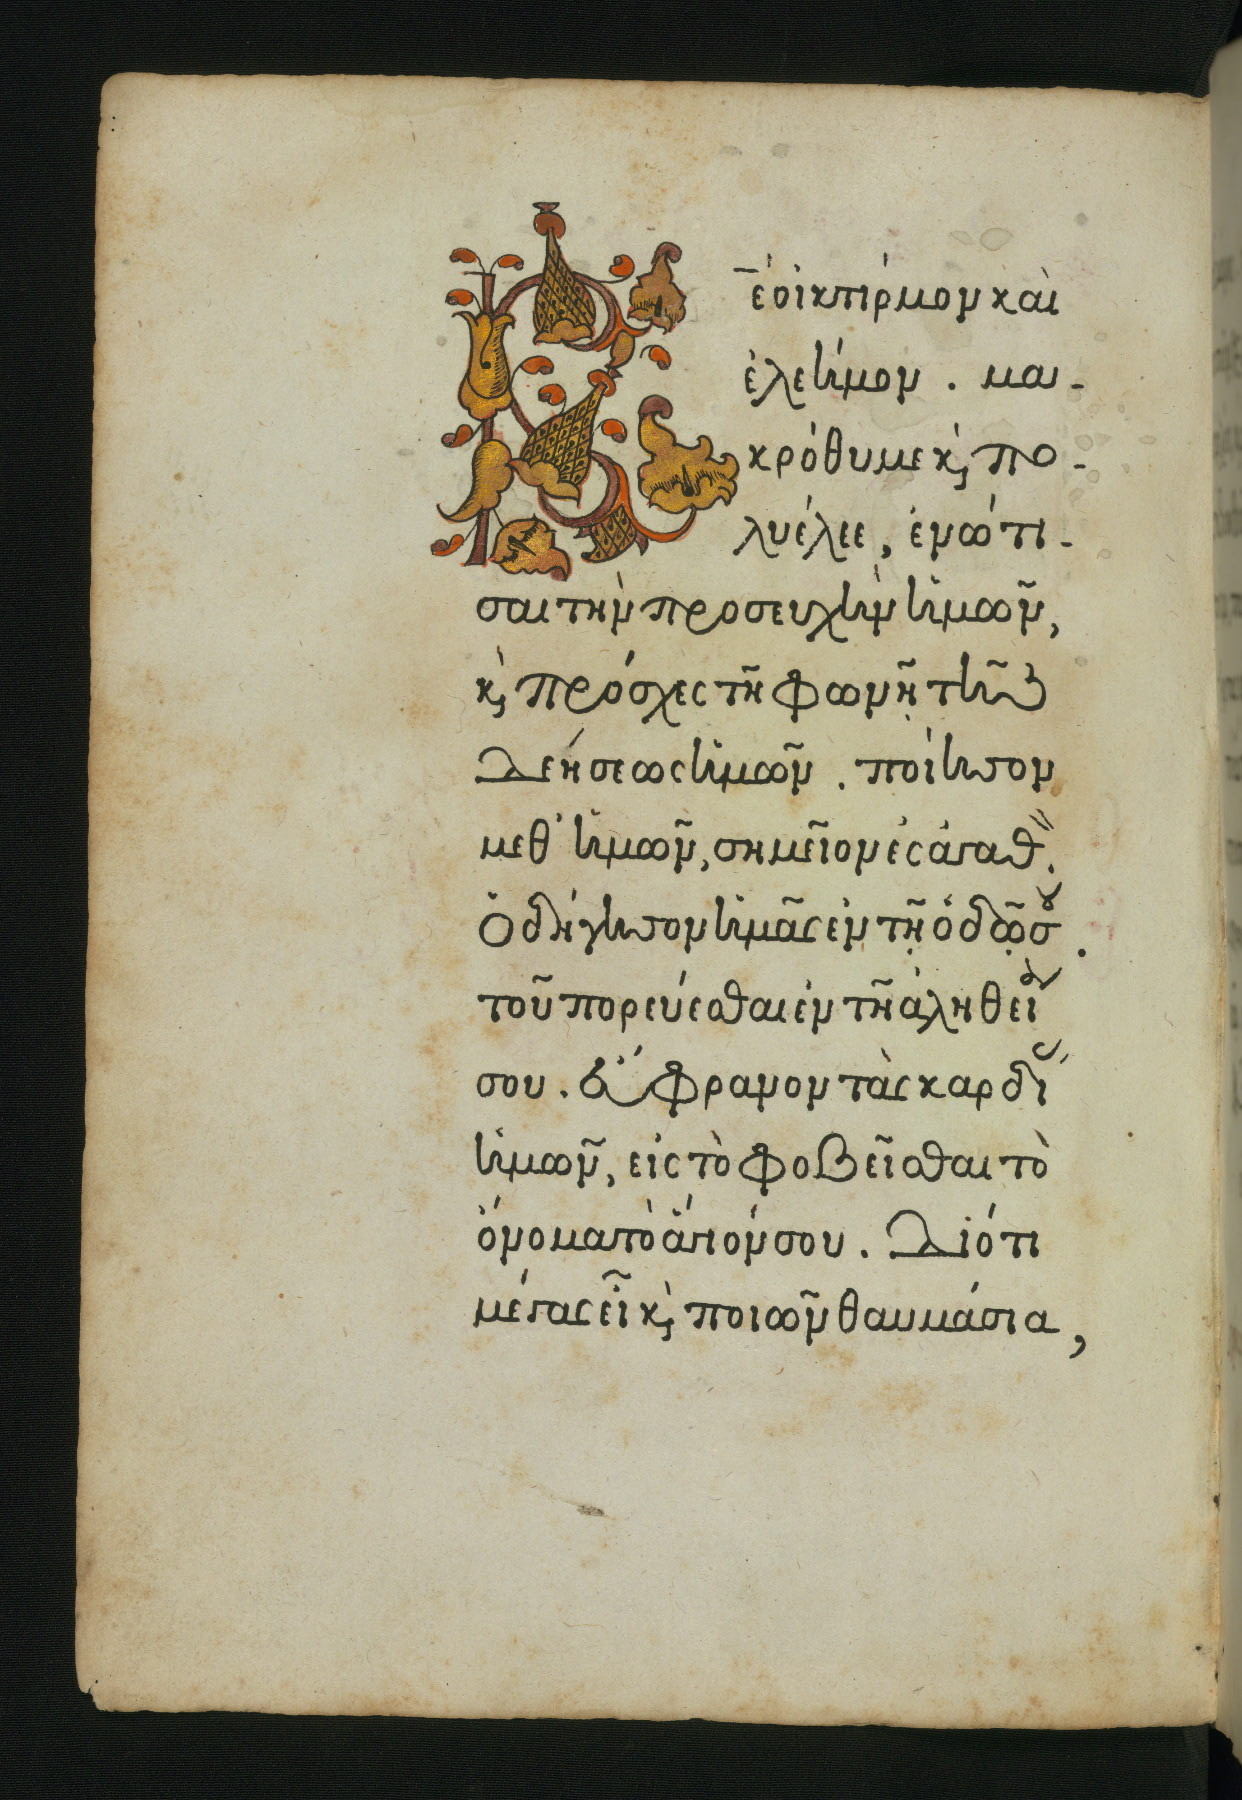 Κ̅ε οἰκτίρμον καὶ
ἐλεῆμον . μα-
κρόθυμε κ̀ πο-
λυέλεε, ἐνώτι-
σαι τὴν προσευχὴν ἡμῶν,
κ̀ πρόσχες τῆ φωνῆ τῆς
Δεήσεως ἡμῶν . ποίησον
μεθ᾽ ἡμῶν, σημεῖον εἰς ἀγαθ̀.
Ὁδήγησον ἡμᾶς ἐν τῆ ὁδῶ σου.
τοῦ πορεύεσθαι ἐν τῆ ἀληθεία
σου . εὔφρανον τὰς καρδί
ἡμῶν, εἰς τὸ φοβεῖσθαι τὸ
ὄνομα τὸ ἅγιόν σου . Διότι
μέγας εἶ κ̀ ποιῶν θαυμάσια,